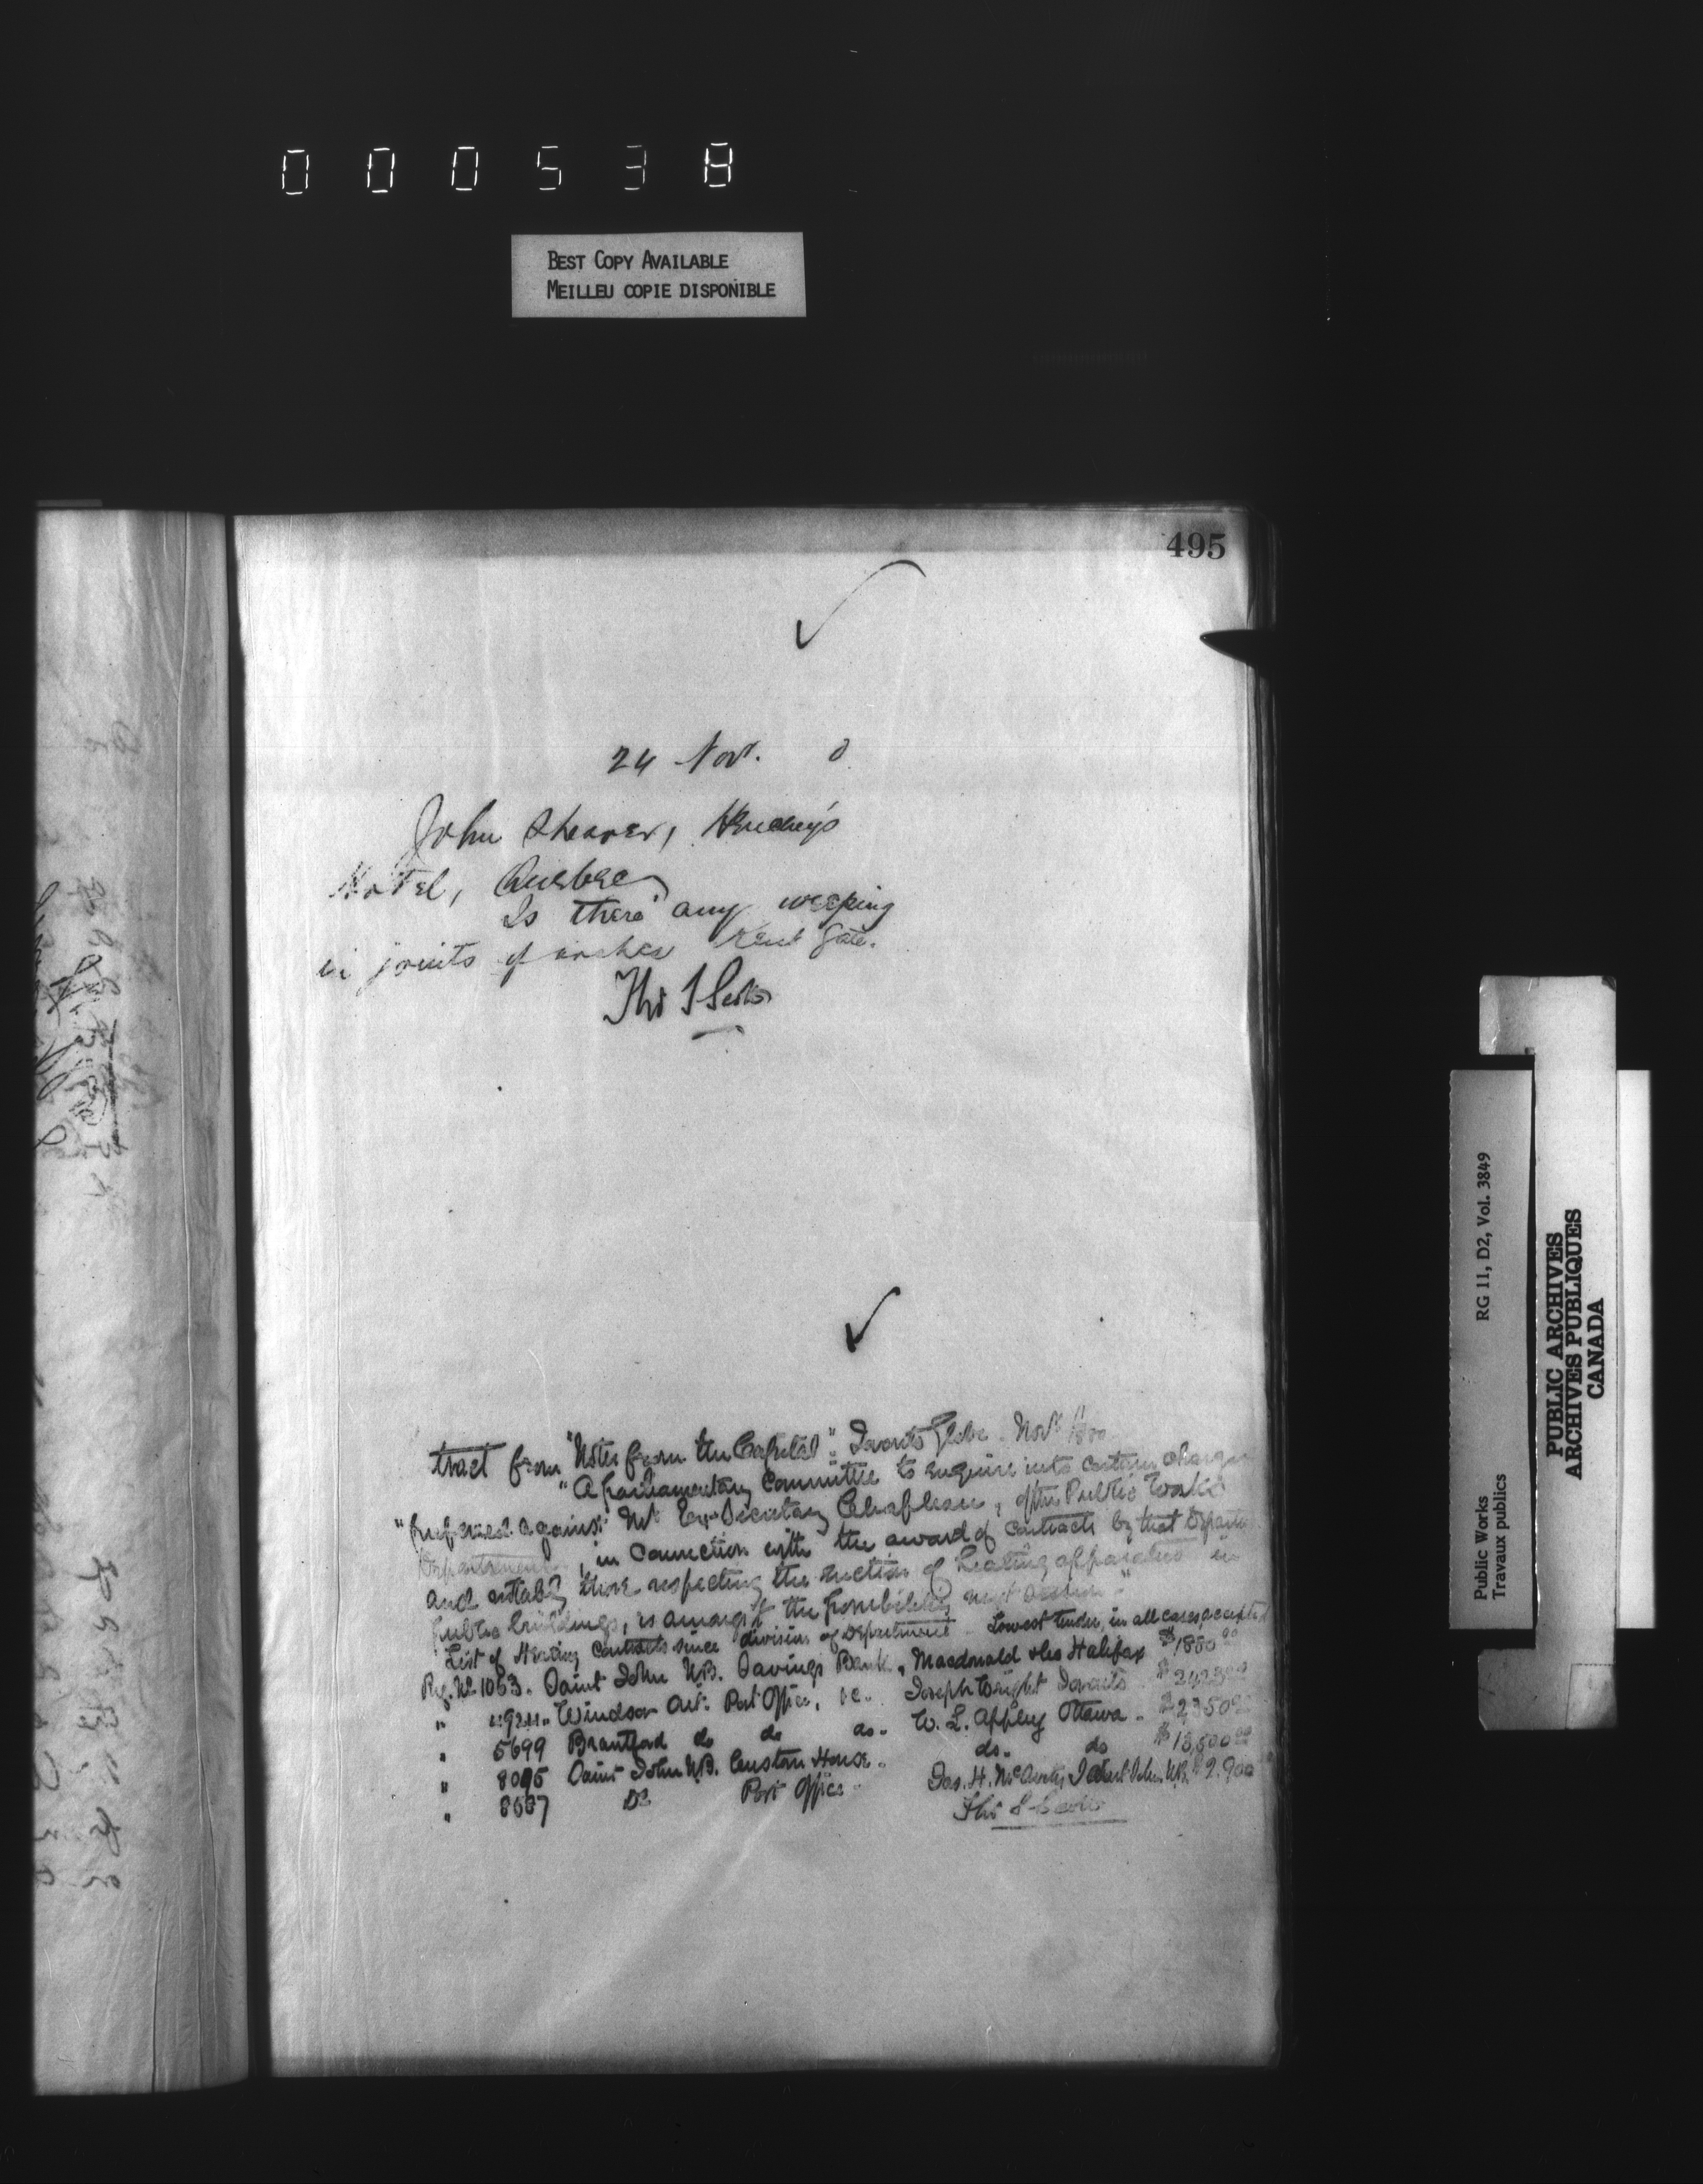 000538
BEST COPY AVAILABLE
MEILLEU COPIE DISPONIBLE
495
24 Novr. 0
John Shearer, Henchey's
Hotel, Quebec
Is there any weeping
in joints of arches Kent Gate.
Thos S Scott
tract from "Notes from the Capital". Toronto Globe. Novr
"A Parliamentary Committee to enquire into certain charges
"preferred against Mr Ex-Secretary Chapleau, of the Public Works
Department, in connection with the award of contracts by that Departm
and notably those respecting the erection of heating apparatus in
public buildings, is amongst the possibilities next session."
List of Heating Contracts since division of Department. Lowest tender, in all cases, accepted
Reg. No 1063. Saint John N.B. Savings Bank, Macdonald & Co Halifax $1880.00
" 4924. Windsor Ont. Post Office, &c. Joseph Wright Toronto $2423.00
" 5699 Brantford do do do. W. L. Appleby Ottawa. $2350.00
" 8095 Saint John N.B. Custom House. do. do $13,500.00
" 8587 Do Post Office. Jas. H. McAvity Saint John N.B. $2.900
Thos S Scott
RG 11, D2, Vol. 3849
Public Works
Travaux publics
PUBLIC ARCHIVES
ARCHIVES PUBLIQUES
CANADA